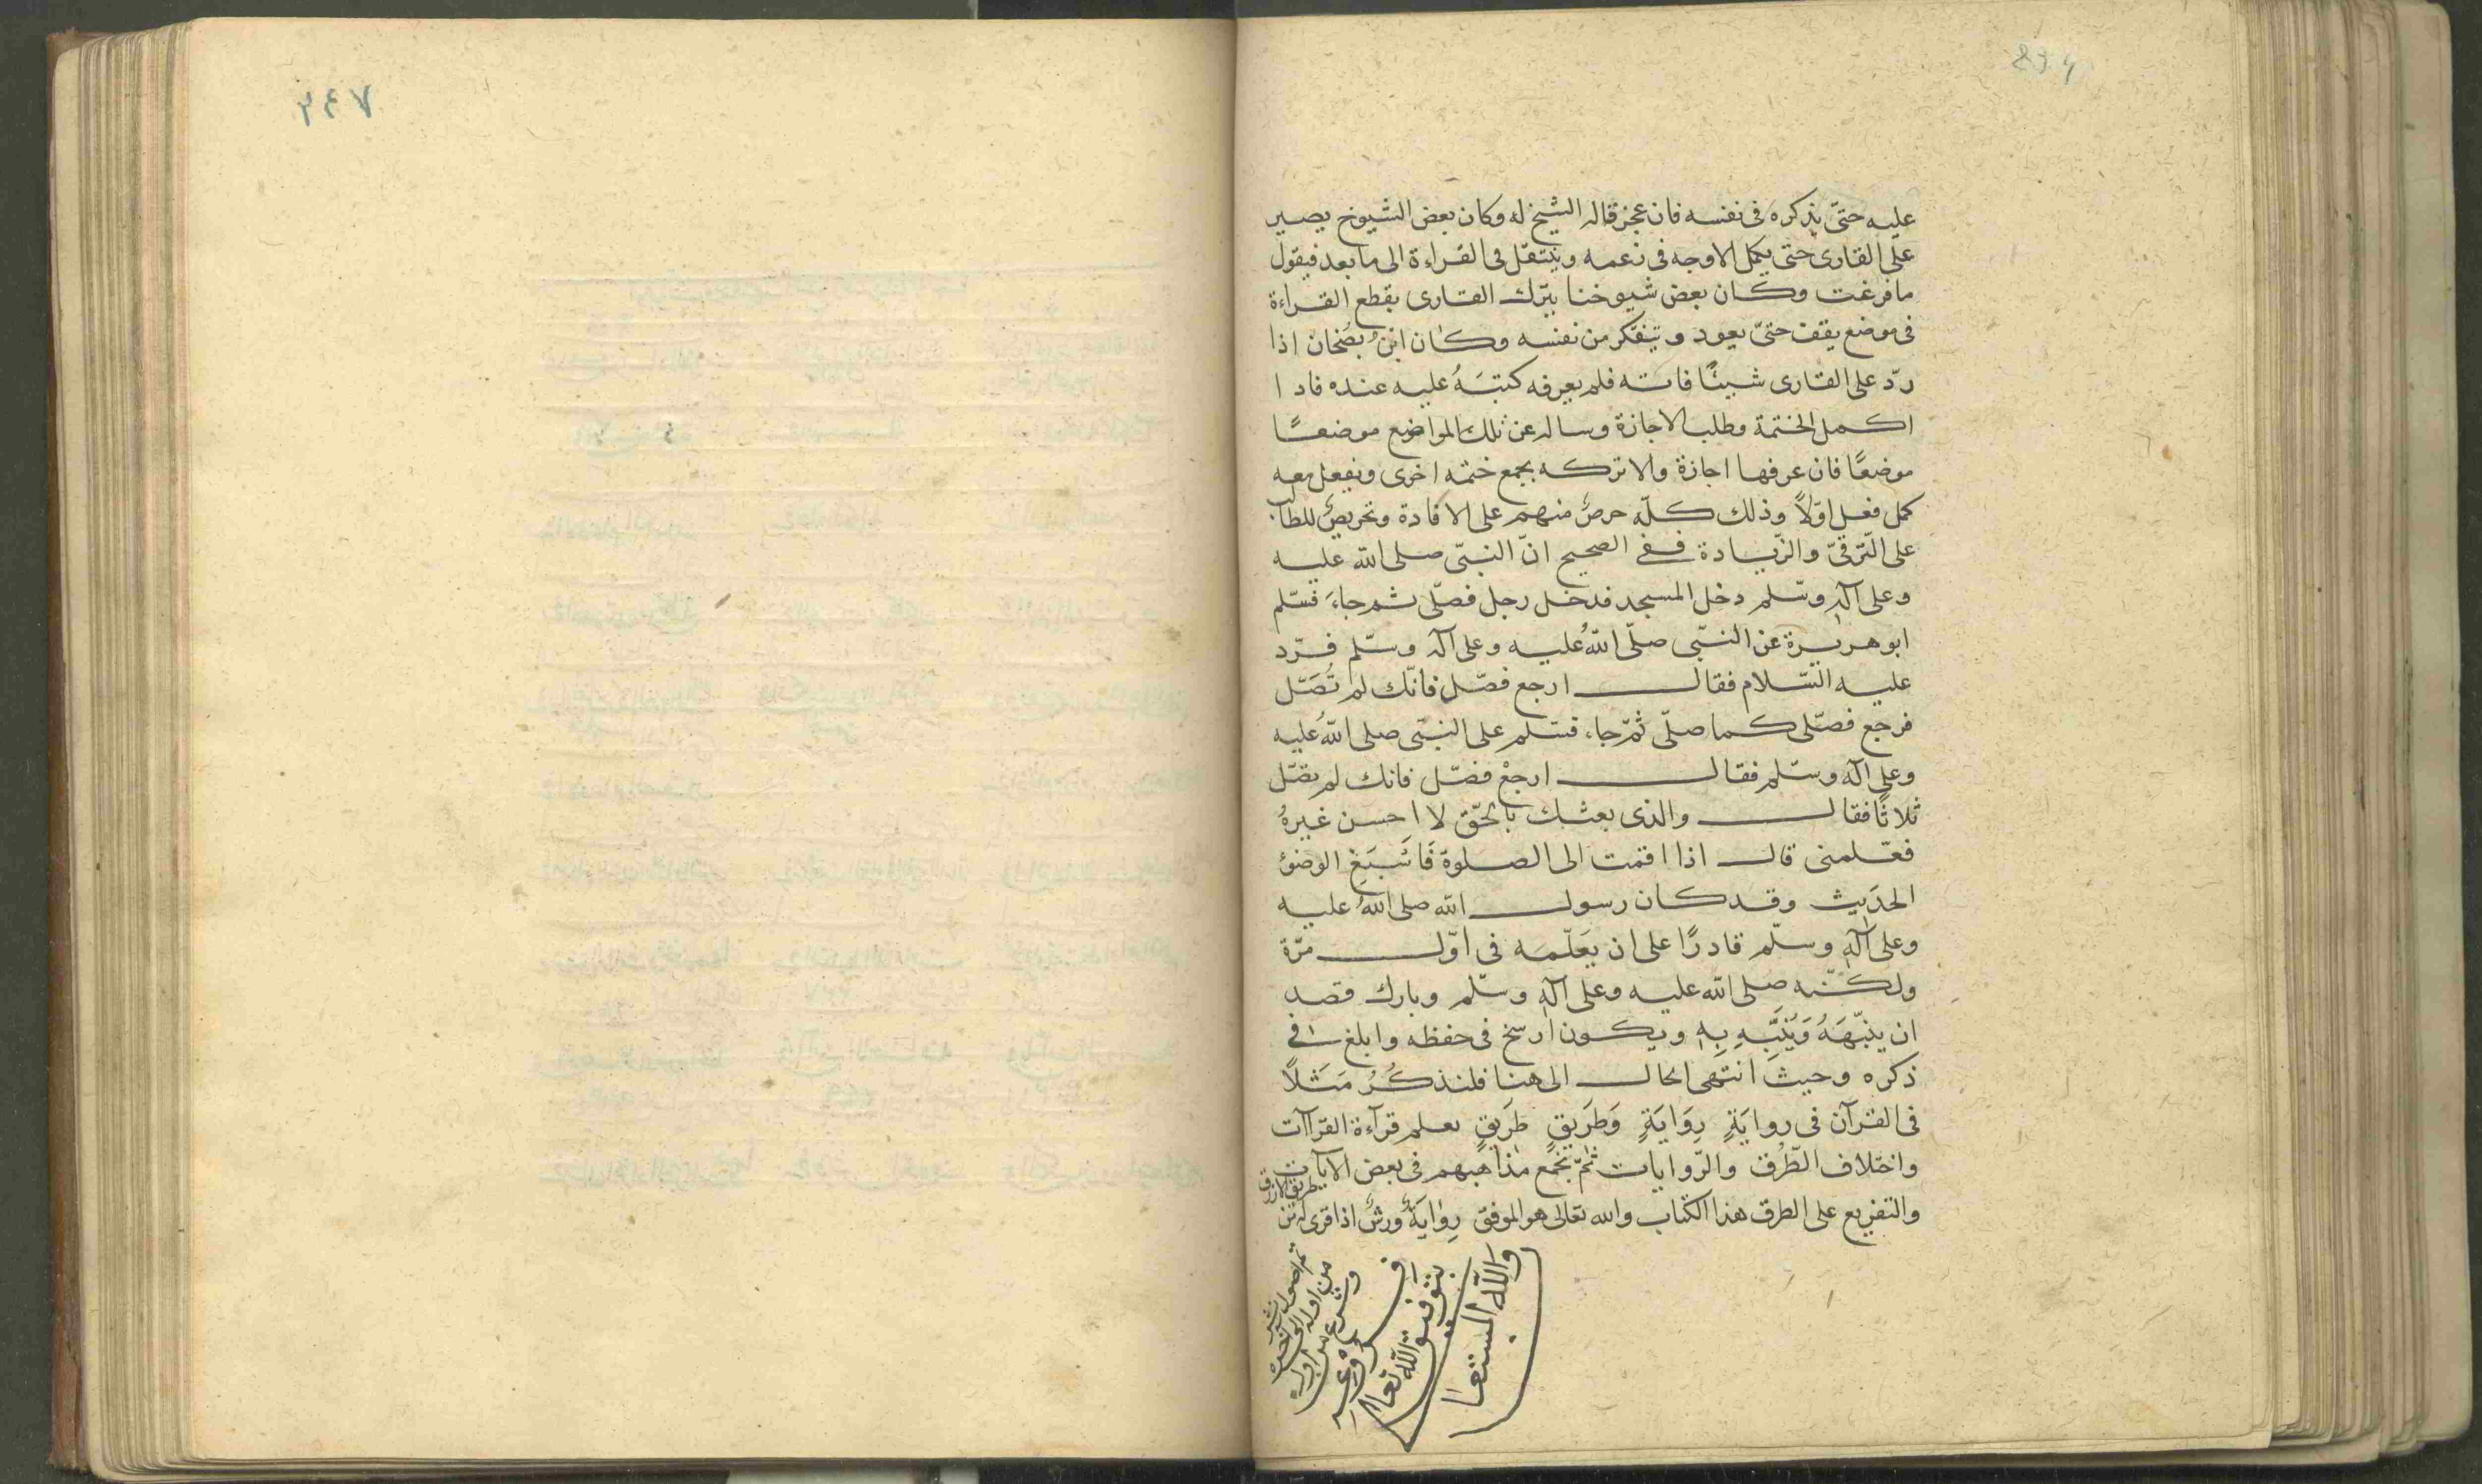 عليه حتىّ يذكره فى نفسه فان عجز قاله الشيخ له وكان بعض الشيوخ يصير
على القارى حتى يكمل الاوجه فى زعمه وينتقل فى القراءة الى ما بعد فيقول
ما فرغت وكان بعض شيوخنا يترك القارى يقطع القراءة
فى موضع يقف حتىّ يعود ويتفكر من نفسه وكان ابن بُضْحان اذا
ردّ على القارى شيئًا فاته فلم يعرفه كتبَهُ عليه عنده فاذا
اكمل الختمة وطلب الاجازة وساله عن تلك المواضع موضعًا
موضعًا فان عرفها اجازة والا تركه يجمع ختمه اخرى ويفعل معه
كمل فعل اوّلاً وذلك كلّه حرصٌ منهم على الافادة وتحريصٌ للطالب
على التّرقىّ والزّيادة ففى الصحيح انّ النبىّ صلى الله عليه
وعلى آله وسّلم دخل المسجد فدخل رجل فصلّى ثم جاءَ فسّلم
ابو هريرة عن النبّى صلّى اللهُ عليه وعلى آله وسّلم فرّد
عليه السّلام فقال ارجع فصّل فانّك لم تُصَّل
فرجع فصلّى كما صلّى ثمّ جاء فسّلم على النبىّ صلى اللهُ عليه
وعلى آله وسّلم فقال ارجعْ فصّل فانك لم تصّل
ثلاثًا فقال والذى بعثك بالحّق لا احسن غيرهُ
فعّلمنى قال اذا اقمت الى الصلوة فَاَسْبَغِ الوضؤ
الحدَيث وقد كان رسول الله صلى اللهُ عليه
وعلى آلهِ وسلّم قادرًا على ان يعَلّمَه فى اوّل مّرة
ولكنّه صلى الله عليه وعلى آلهِ وسّلم وبارك قصد
ان ينبّهَهُ وَيُنَبَّهِ بِهِ ويكون ارسخ فى حفظه وابلغ فى
ذكره وحيث انتهى الحال الى هنا فلنذكُرُ مَثَلاً
فى القرآن فى روايَةٍ رِوَايَةٍ وَطَرَيقٍ طَرَيقٍ يعلم قرآءة القرّاآت
واختلاف الطُّرُق والرّوايات ثمّ نَجْمَع مذاهبهم فى بعض الايآت
طريق الازرق
والتفريع على الطرق هذا الكتاب والله تعالى هو الموفق رِوايَةُ ورشٌ اذا قرى له من
من اوله الى آخره
بتوفيق الله تعالى
والله المستعان
٢٤٧